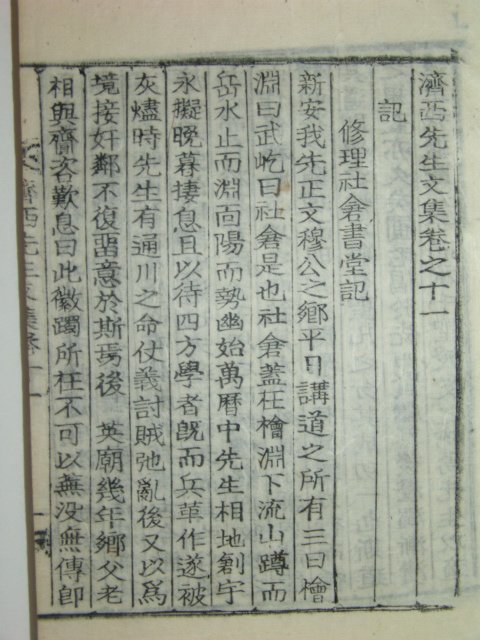 濟西先生文集卷之十一
記
修理社倉書堂記
新安我先正文穆公之鄕平日講道之所有三曰檜
淵曰武屹曰社倉是也社倉蓋在檜淵下流山蹲而
岳水止而淵面陽而勢幽始萬曆中先生相地創宇
永擬晩暮捿息且以待四方學者旣而兵革作遂被
灰燼時先生有通川之命仗義討賊弛亂後又以爲
境接奸鄰不復畱意於斯焉後 英廟幾年鄕父老
相與齎咨歎息曰此徽躅所在不可以無没無傳卽
濟西先生文集卷十一